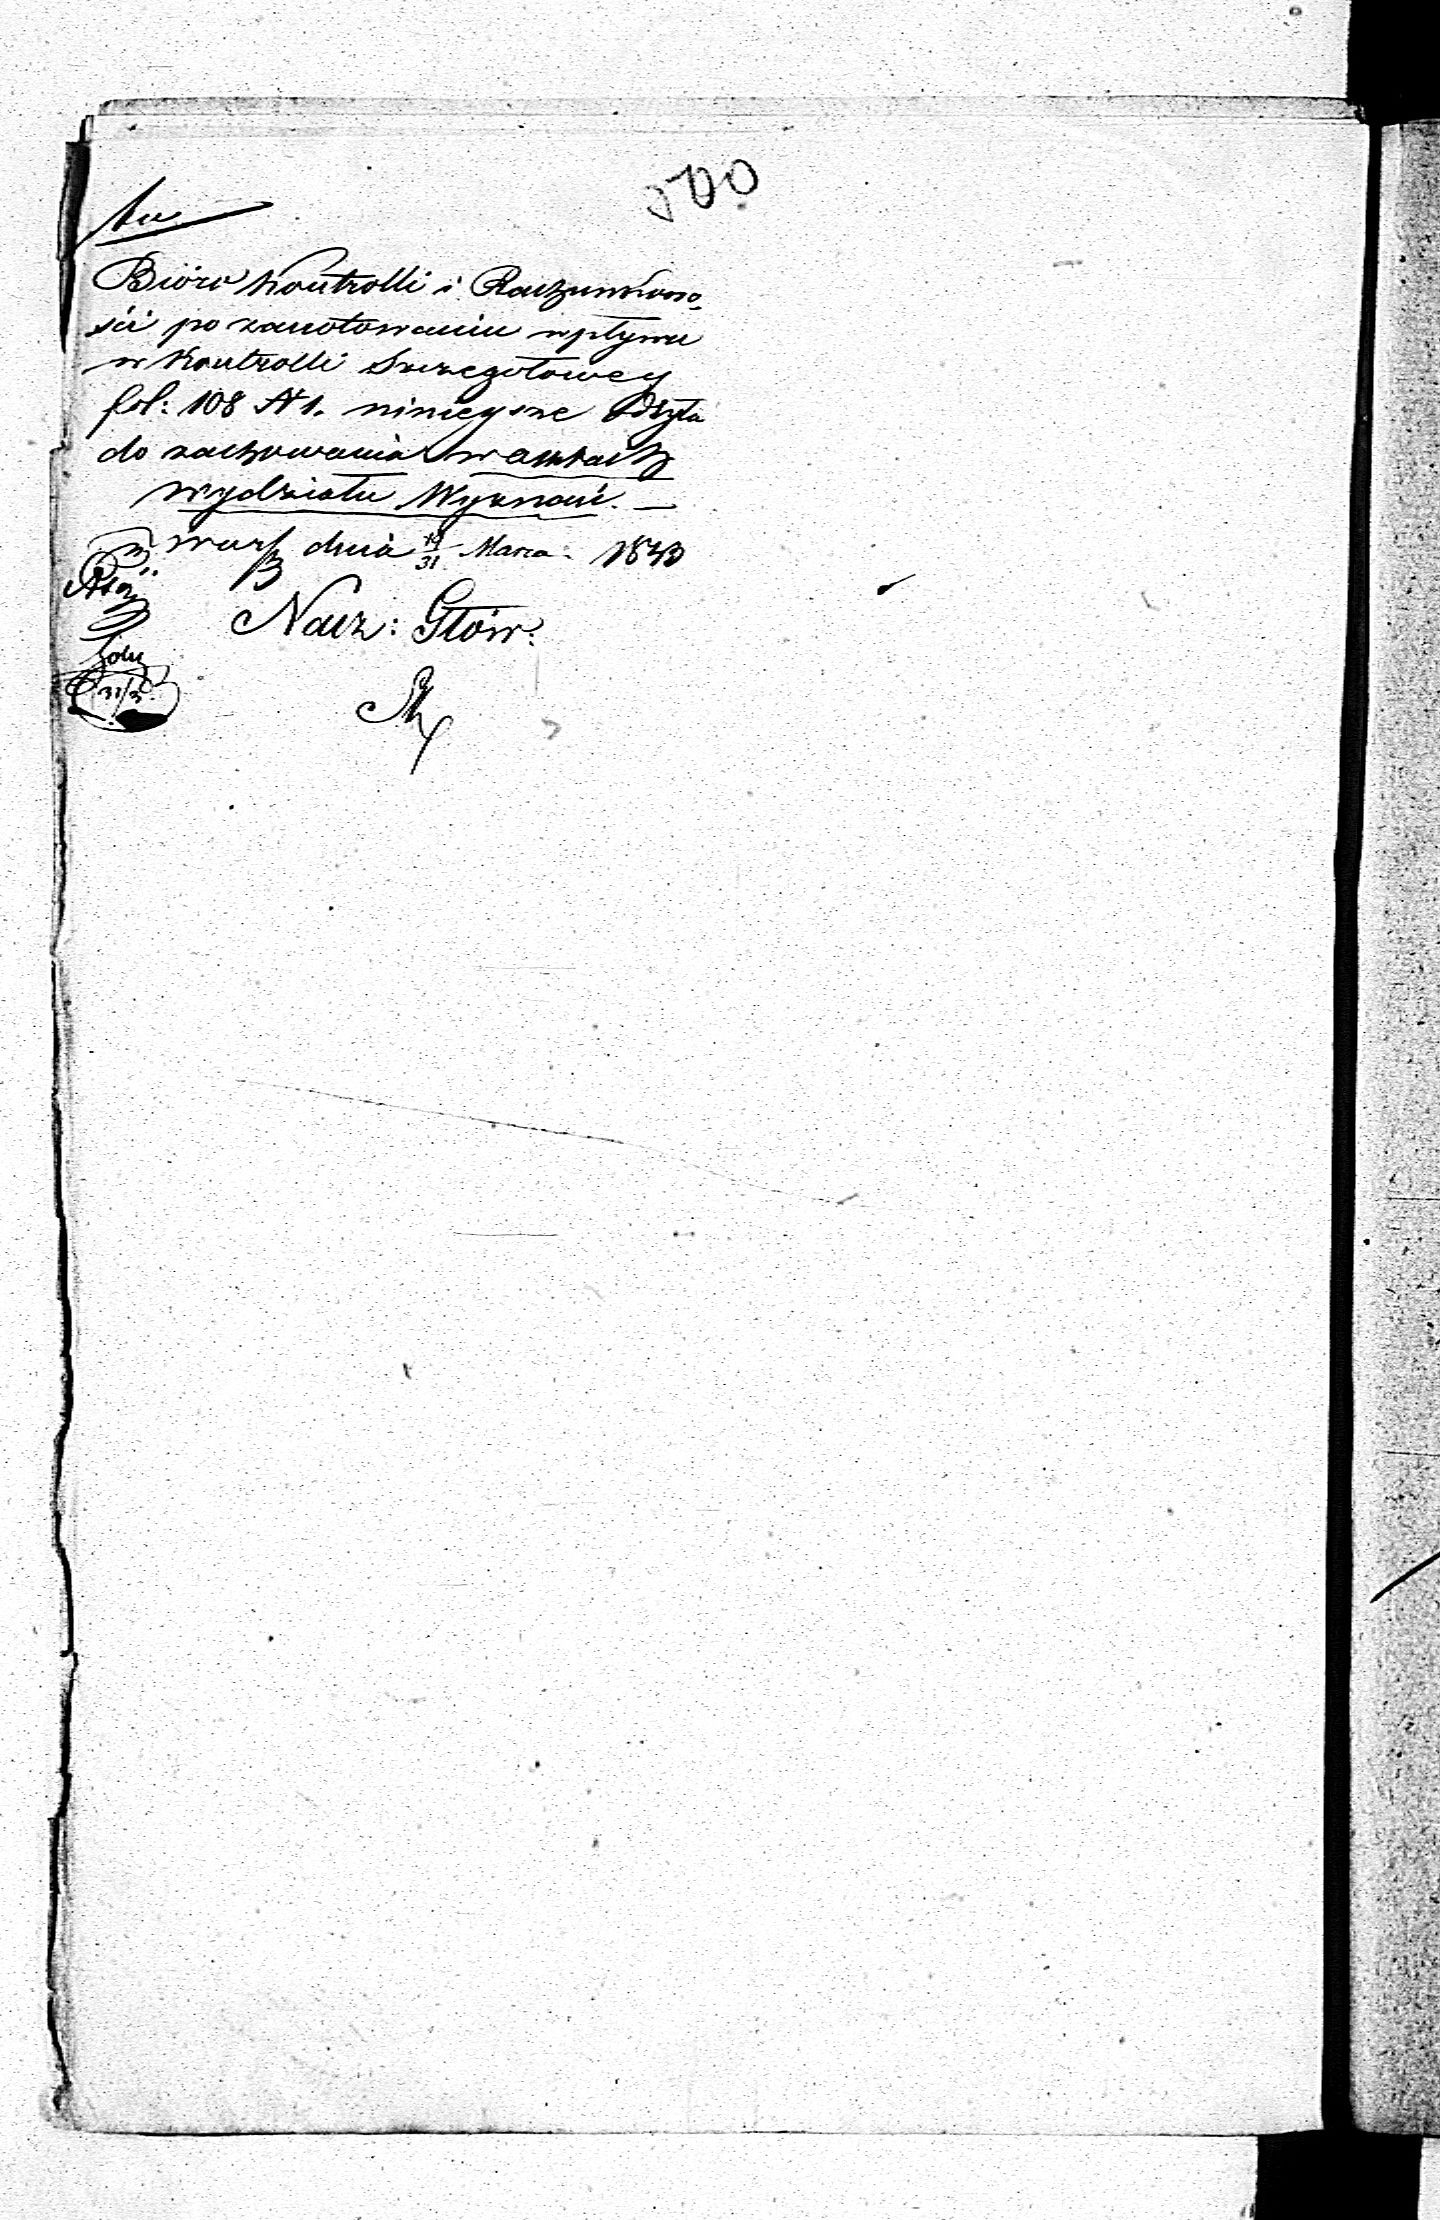 500
Bióro Kontrolli i Rachunkowo-
ści po zanotowaniu wpływu
w Kontrolli Szczegółowey
fol: 108 N 1. ninieysze odsyła
do zachowania w aktach
wydziału Wyznań. —
w Warsz dnia 19/31 Marca 1843
Nacz: Głów:
31/3